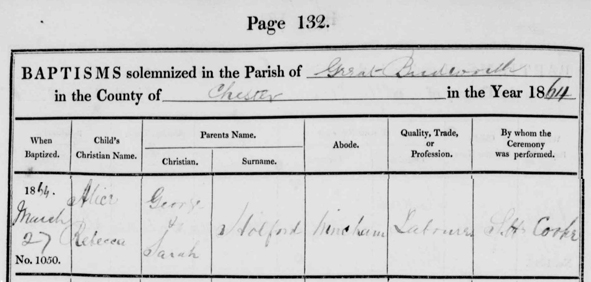 Page 132.
BAPTISMS solemnized in the Parish of Great Budworth
in the County of Chester in the Year 1864
When Baptized.
Child's Christian Name.
Parents Name.
Christian.
Surname.
Abode.
Quality, Trade, or Profession.
By whom the Ceremony was performed.
1864.
March
27
No. 1050.
Alice
Rebecca
George
&
Sarah
Labourer
S. H. Cooke